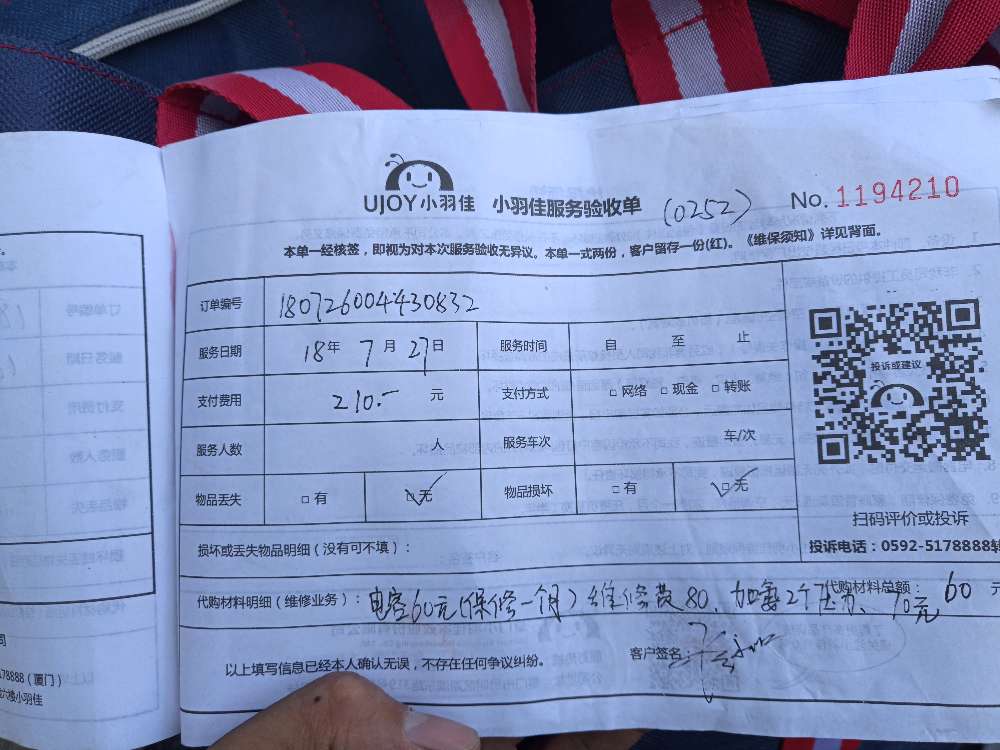 UJOY小羽佳 小羽佳服务验收单 (0252) No. 1194210
本单一经核签，即视为对本次服务验收无异议。本单一式两份，客户留存一份(红)。《维保须知》详见背面。
订单编号 180726004430832
服务日期 18年 7月 27日 服务时间 自 至 止
支付费用 210.- 元 支付方式 □ 网络 □ 现金 □ 转账
服务人数 人 服务车次 车/次
物品丢失 □ 有 □ 无 物品损坏 □ 有 □ 无
投诉或建议
扫码评价或投诉
投诉电话：0592-5178888转
损坏或丢失物品明细（没有可不填）：
代购材料明细（维修业务）：电容60元(保修一个月)维修费80、加氟2个压力、70元 代购材料总额： 60 元
以上填写信息已经本人确认无误，不存在任何争议纠纷。 客户签名：
司
178888（厦门）
六楼小羽佳